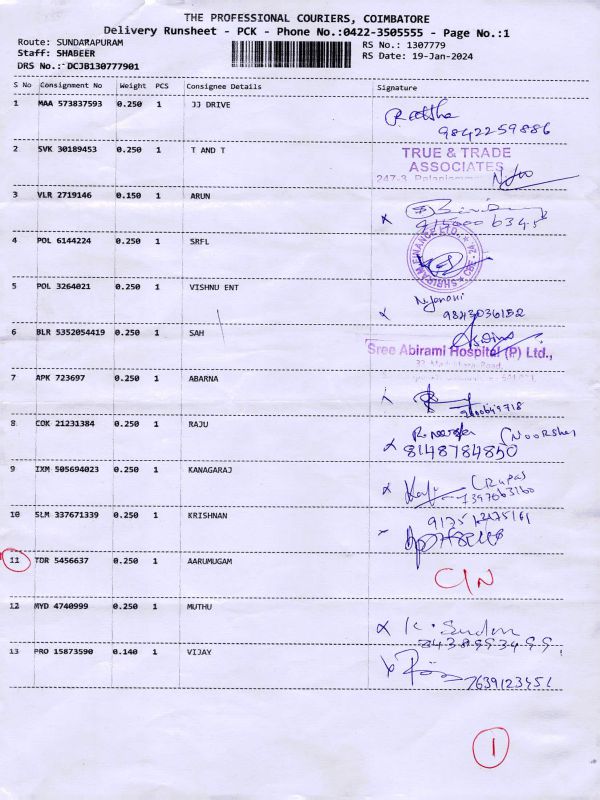 THE PROFESSIONAL COURIERS, COIMBATORE
Delivery Runsheet - PCK - Phone No.:0422-3505555 - Page No.:1
Route: SUNDARAPURAM
Staff: SHABEER
DRS No.: DCJB130777901
RS No.: 1307779
RS Date: 19-Jan-2024
S No Consignment No Weight PCS Consignee Details Signature
1 MAA 573837593 0.250 1 JJ DRIVE
9842259886
2 SVK 30189453 0.250 1 T AND T
TRUE & TRADE
ASSOCIATES
3 VLR 2719146 0.150 1 ARUN
4 POL 6144224 0.250 1 SRFL
SHRIRAM FINANCE LTD.
5 POL 3264021 0.250 1 VISHNU ENT
9843036152
6 BLR 5352054419 0.250 1 SAH
Sree Abirami Hospital (P) Ltd.,
7 APK 723697 0.250 1 ABARNA
8 COK 21231384 0.250 1 RAJU
8148784850
9 IXM 505694023 0.250 1 KANAGARAJ
10 SLM 337671339 0.250 1 KRISHNAN
11 TDR 5456637 0.250 1 AARUMUGAM
C/N
12 MYD 4740999 0.250 1 MUTHU
13 PRO 15873590 0.140 1 VIJAY
7639123451
1